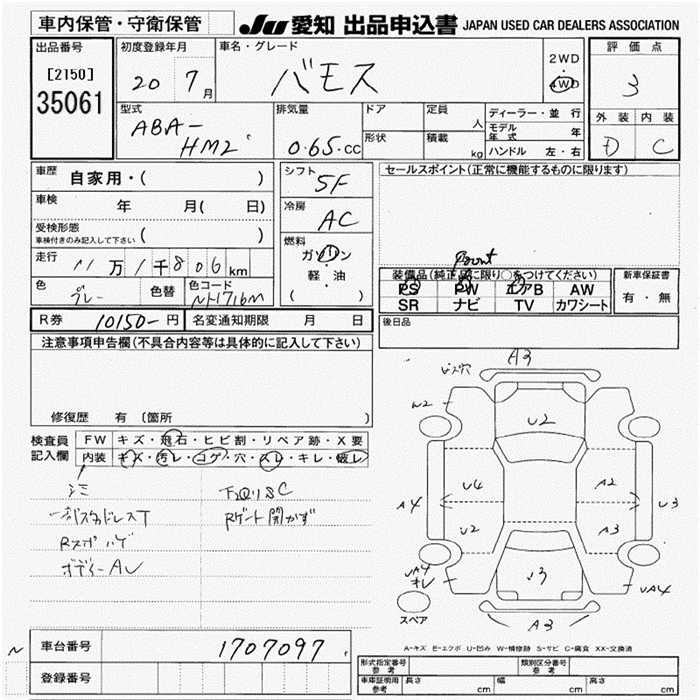 車内保管・守衛保管
JU 愛知 出品申込書 JAPAN USED CAR DEALERS ASSOCIATION
出品番号
[2150]
35061
初度登録年月
20 7月
車名・グレード
バモス
2WD
・
4WD
評価点
3
外装 内装
D C
型式
ABA-
HM2
排気量
0.65.cc
ドア
形状
定員 人
積載 kg
ディーラー・並行
モデル年式 年
ハンドル 左・右
車歴 自家用・( )
車検 年 月( 日)
受検形態
車検付きのみ記入して下さい ( )
走行 11万1千806km
色 グレー 色替 色コード NH716M
シフト 5F
冷房 AC
燃料
ガソリン
・
軽・油
( )
セールスポイント(正常に機能するものに限ります)
Front
装備品(純正品に限り○をつけてください)
PS PW エアB AW
SR ナビ TV カワシート
新車保証書
有・無
R券 10150-円 名変通知期限 月 日
後日品
注意事項申告欄(不具合内容等は具体的に記入して下さい)
修復歴 有 〔箇所
検査員
記入欄
FW キズ・飛石・ヒビ割・リペア跡・X要
内装 キズ・汚レ・コゲ・穴・スレ・キレ・破レ
シミ
一部スタッドレスT
Rスポハゲ
ボディーAU
下回りSC
Rゲート開かず
ビス穴 A3
U2
U2
A4
U4
A2
U3
U2
A3
UA4
オレ
U3
UA4
スペア
A3
A-キズ E-エクボ U-凹み W-補修跡 S-サビ C-腐食 XX-交換済
N
車台番号 1707097
登録番号
形式指定番号 参考
類別区分番号 参考
車庫証明用 参考 長さ cm 幅 cm 高さ cm